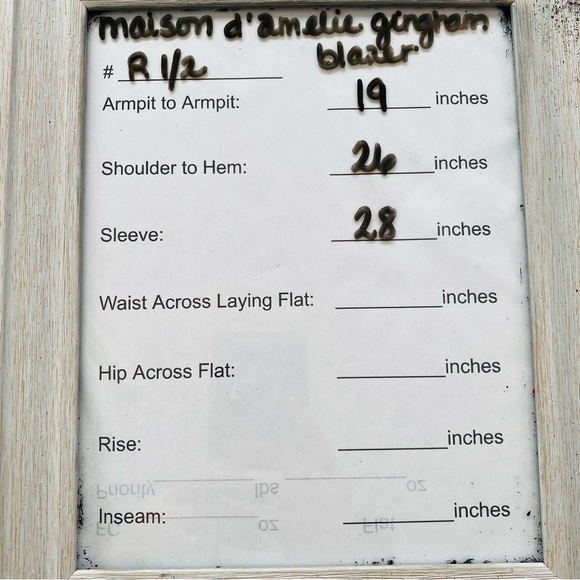 maison d'amelie gingham
blazer
# R 1/2
Armpit to Armpit: 19 inches
Shoulder to Hem: 26 inches
Sleeve: 28 inches
Waist Across Laying Flat: ______ inches
Hip Across Flat: ______ inches
Rise: ______ inches
Priority ______ lbs ______ oz
Inseam: ______ inches
FC ______ oz Flat